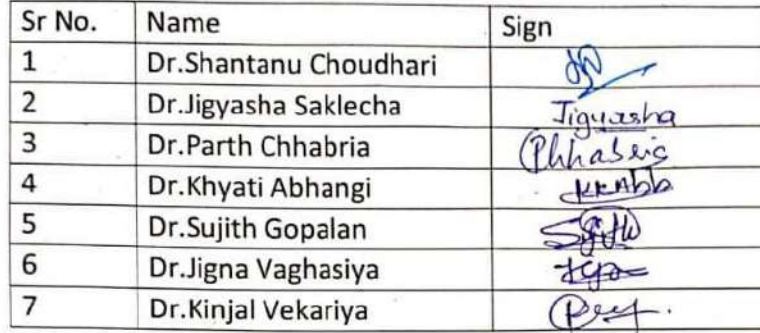 Sr No. Name Sign
1 Dr.Shantanu Choudhari
2 Dr.Jigyasha Saklecha Jigyasha
3 Dr.Parth Chhabria
4 Dr.Khyati Abhangi
5 Dr.Sujith Gopalan Sujith
6 Dr.Jigna Vaghasiya
7 Dr.Kinjal Vekariya